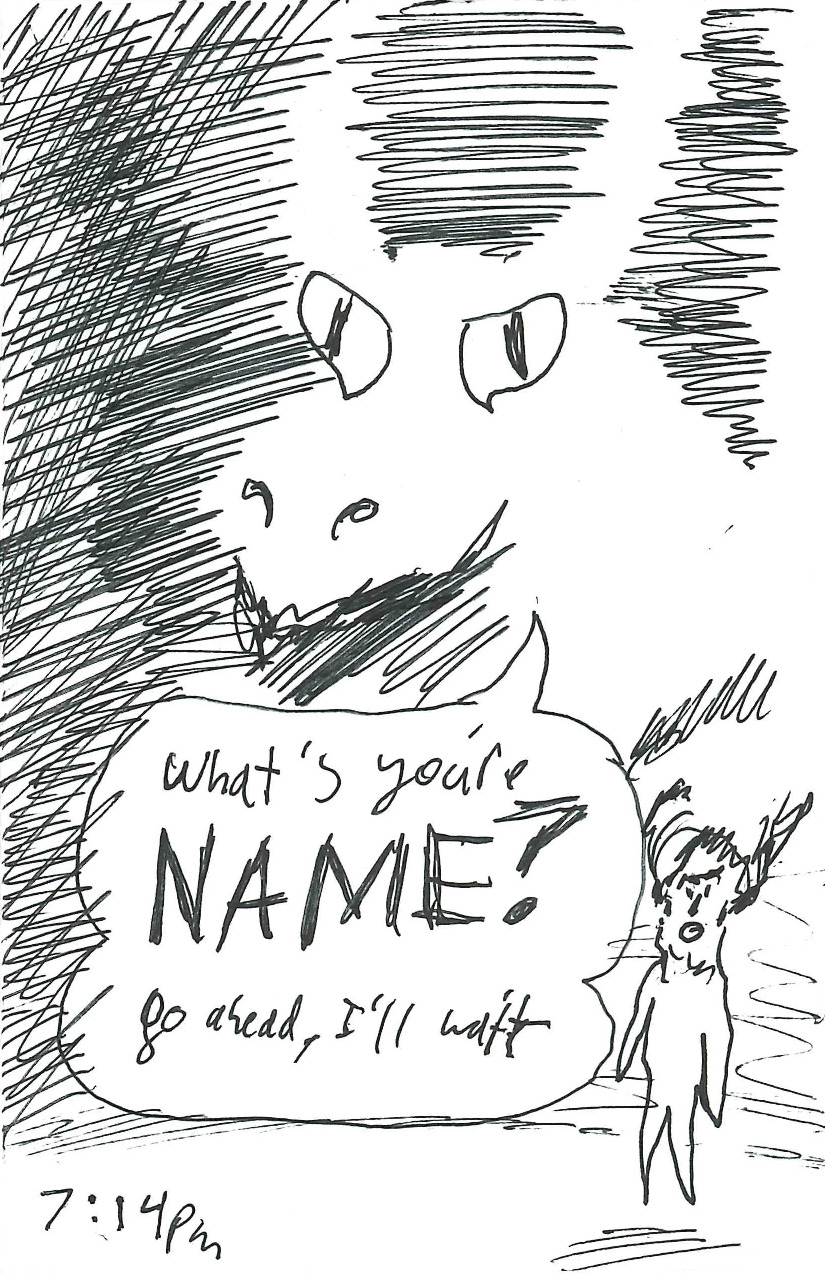 what's you're
NAME?
go ahead, I'll wait
7:14pm